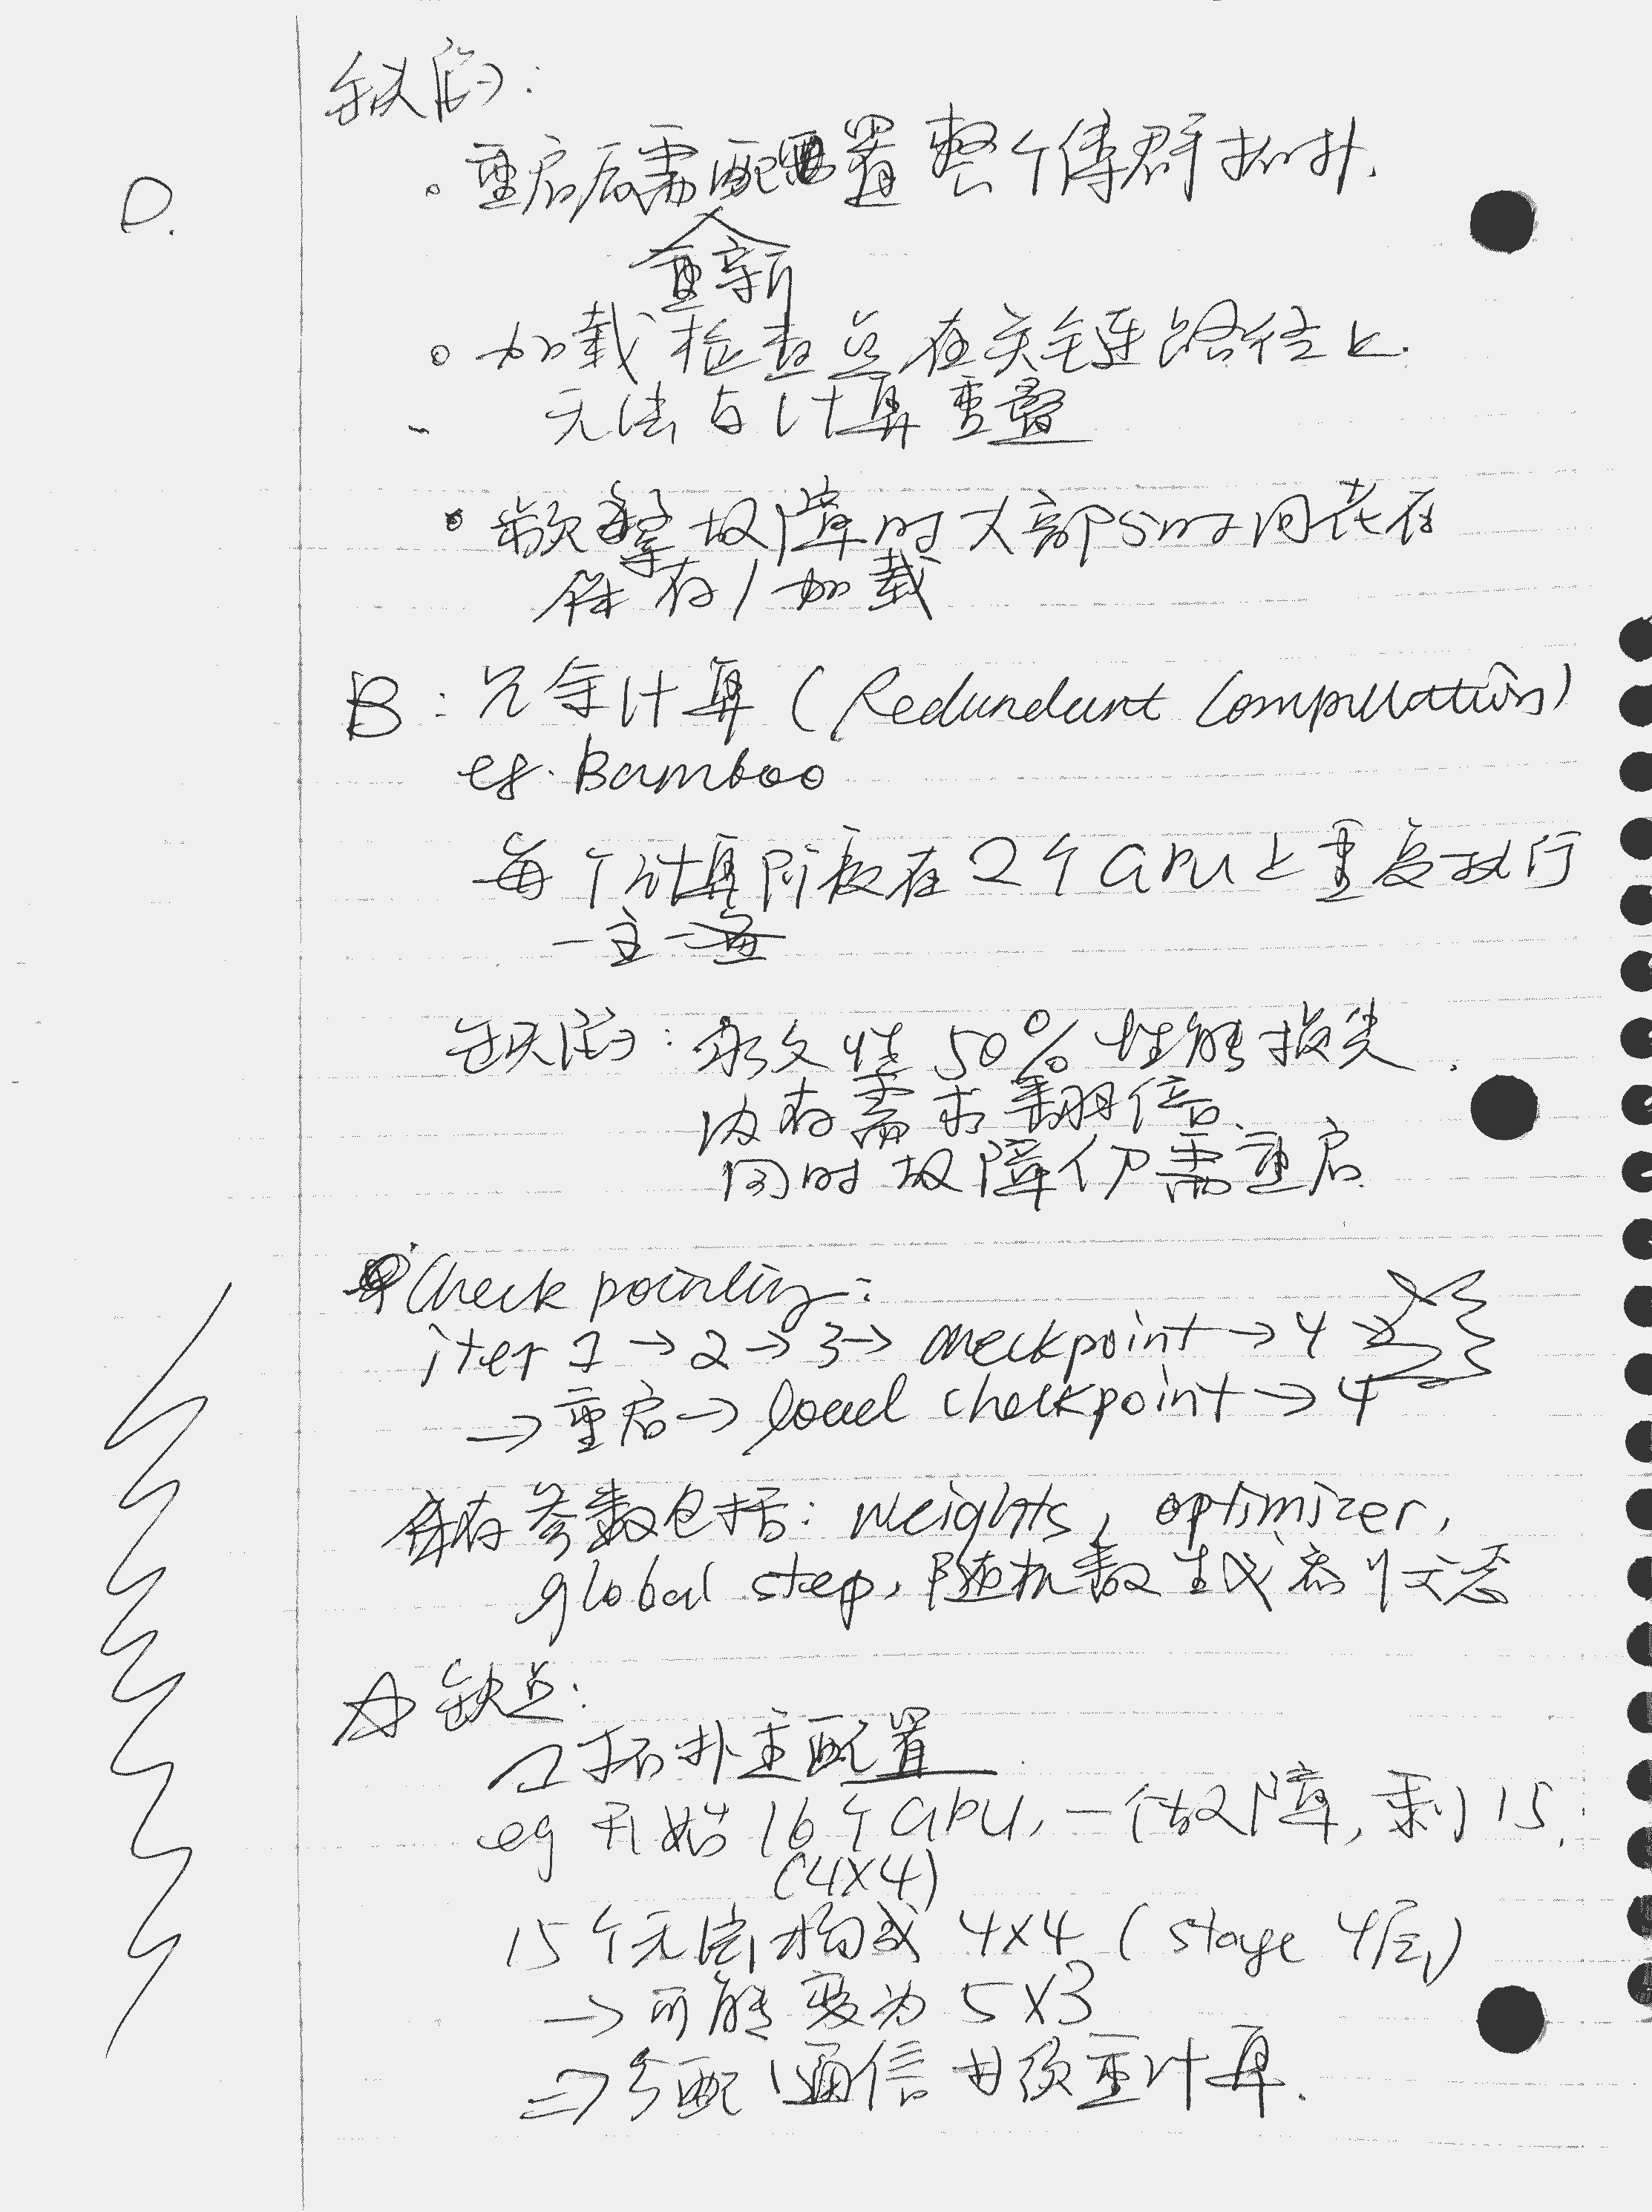 缺陷:
D.
。重启后需配置整个集群拓扑.
重新
。加载检查点在关键路径上.
无法与计算重叠
• 频繁故障时大部分时间花在
保存/加载
B: 冗余计算 (Redundant Computation)
eg. Bamboo
每个计算阶段在2个GPU上重复执行
一主一
缺陷: 永久性50%性能损失.
内存需求翻倍.
同时故障仍需重启.
Checkpointing:
iter 1→2→3→ checkpoint→4
→重启→load checkpoint→4
保存参数包括: weights, optimizer,
global step, 随机数生成器状态
☆ 缺点:
拓扑重配置
eg 开始16个GPU, 一个故障, 剩15.
(4×4)
15个无法构成 4×4 (stage 4层)
→可能变为 5×3
⇒分配 通信 必须重计算.